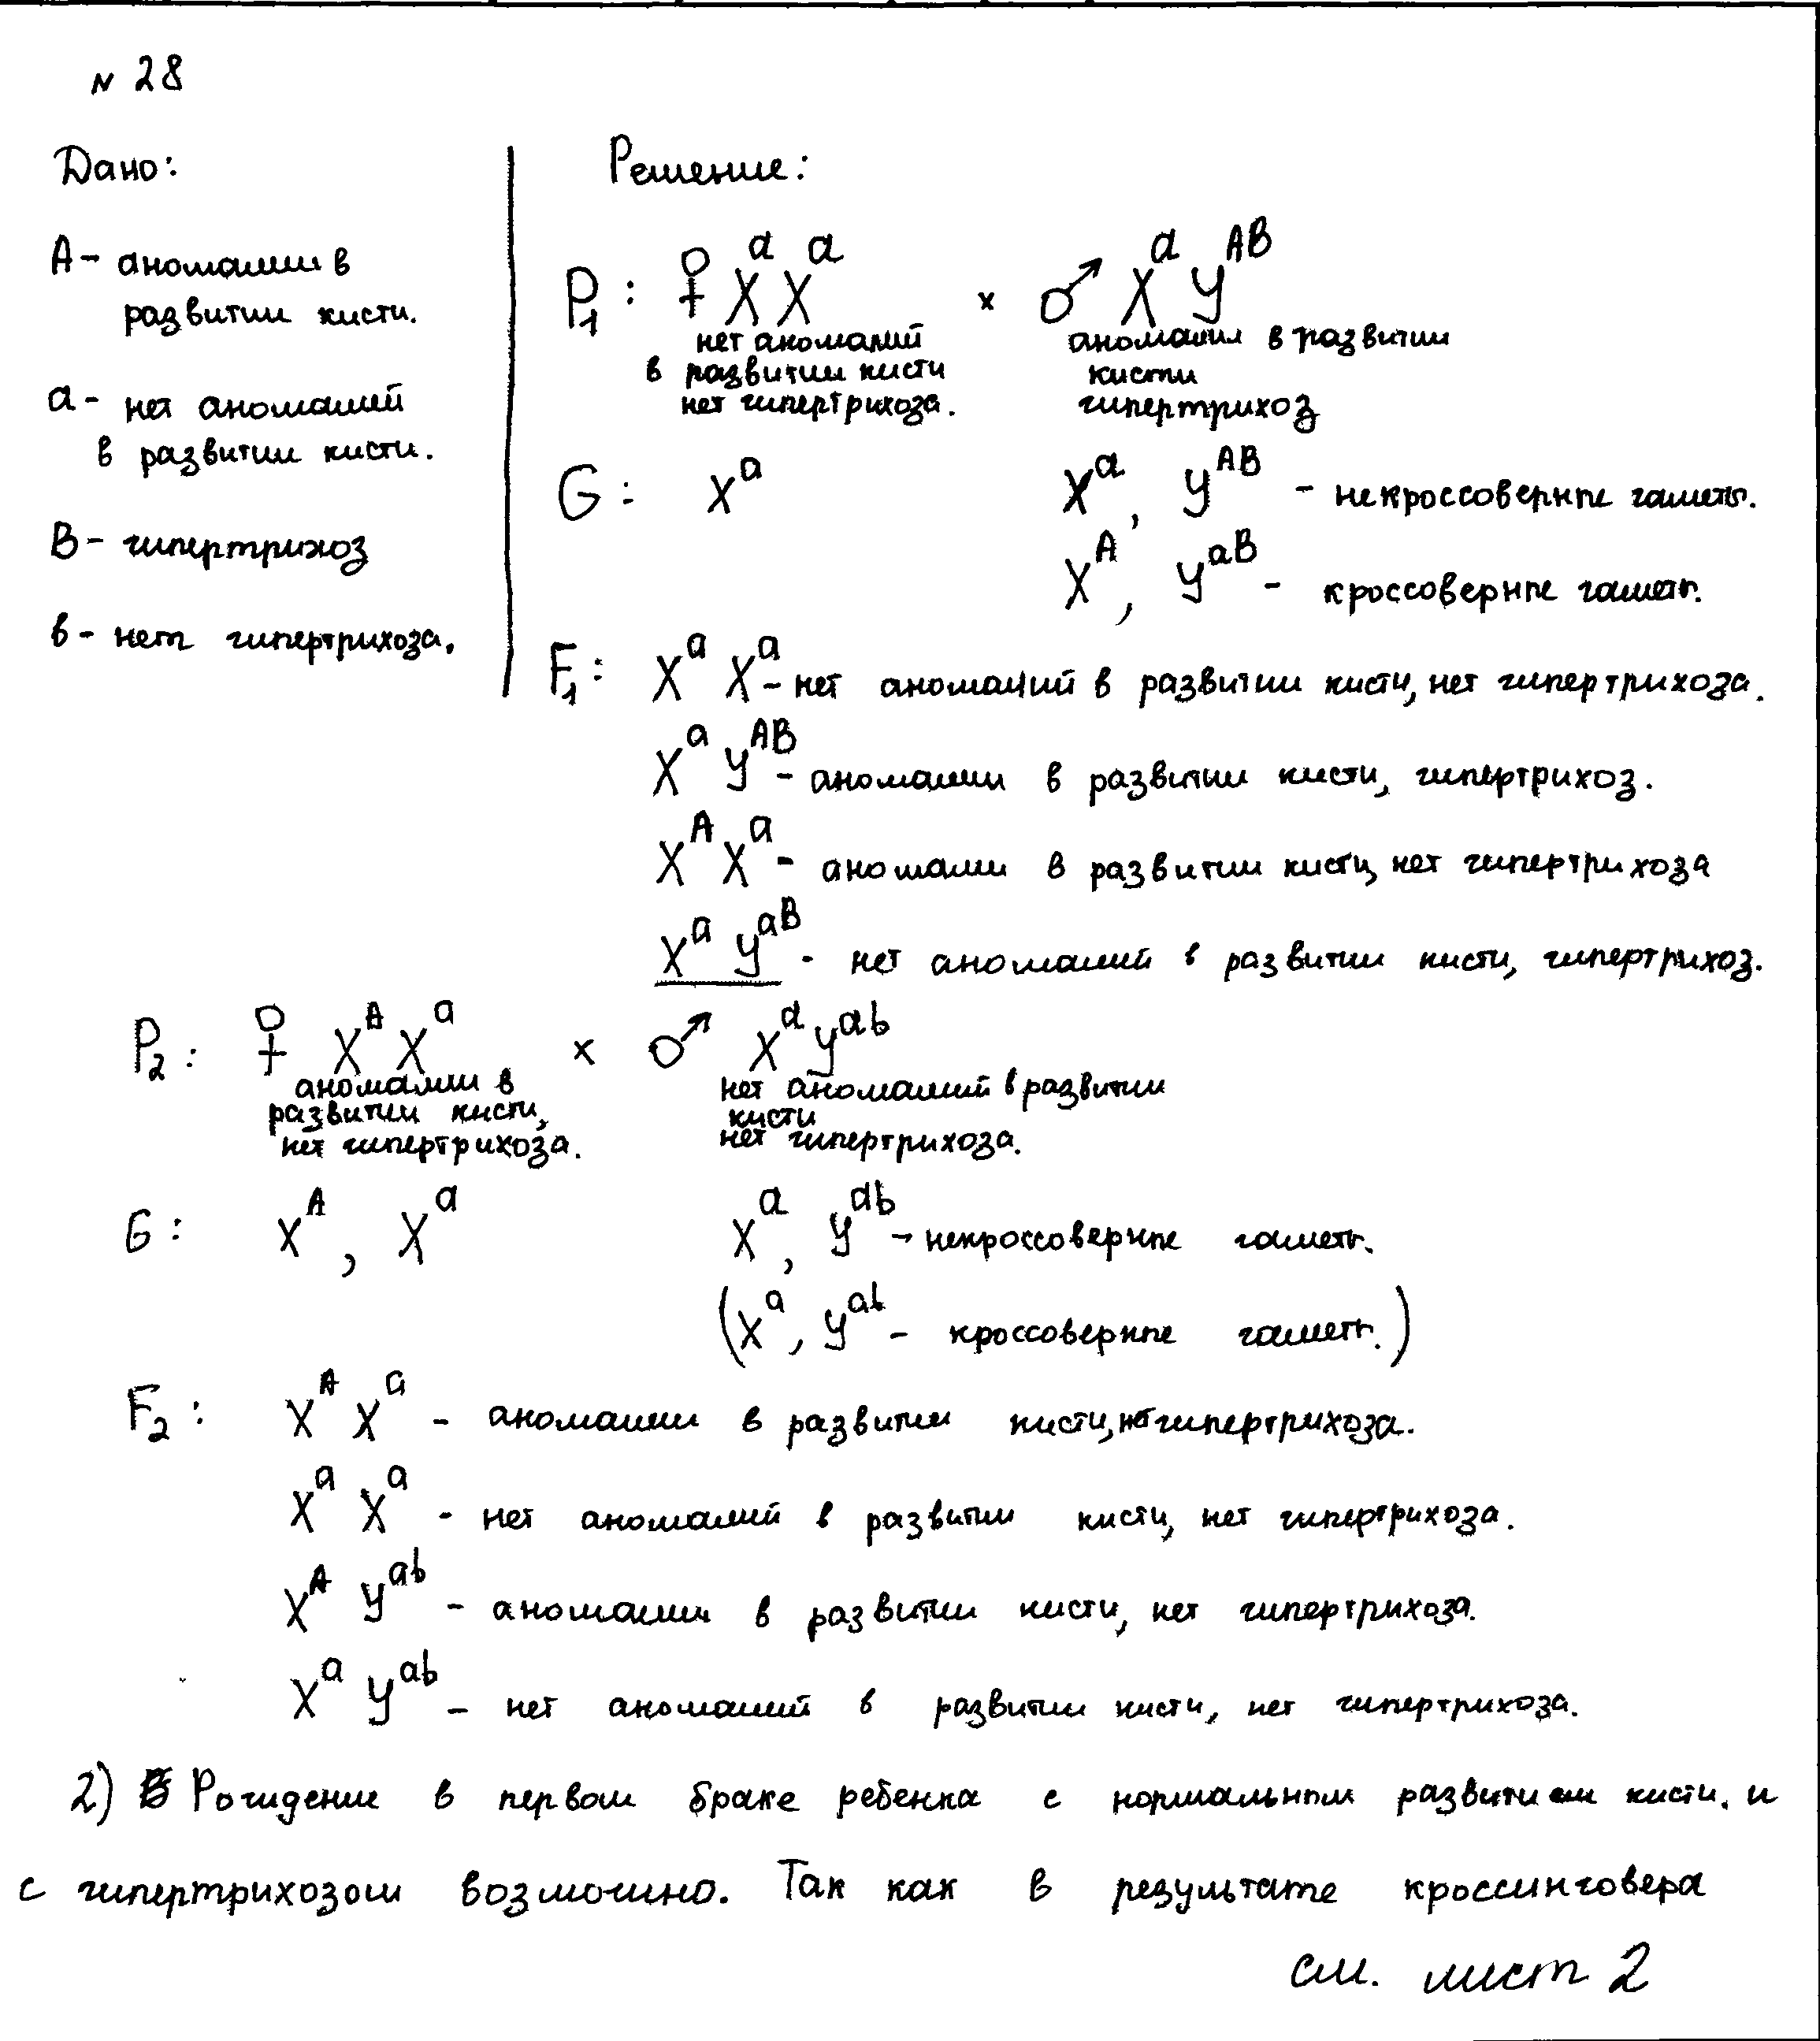 № 28
Дано:
А - аномалии в
развитии кисти.
а - нет аномалий
в развитии кисти.
В - гипертрихоз
в - нет гипертрихоза.
Решение:
P₁: ♀ XᵃXᵃ × ♂ XᵃYᴬᴮ
нет аномалий аномалии в развитии
в развитии кисти кисти
нет гипертрихоза. гипертрихоз
G: Xᵃ Xᵃ, Yᴬᴮ - некроссоверные гаметы.
Xᴬ, Yᵃᴮ - кроссоверные гаметы.
F₁: XᵃXᵃ - нет аномалий в развитии кисти, нет гипертрихоза.
XᵃYᴬᴮ - аномалии в развитии кисти, гипертрихоз.
XᴬXᵃ - аномалии в развитии кисти, нет гипертрихоза
XᵃYᵃᴮ - нет аномалий в развитии кисти, гипертрихоз.
P₂: ♀ XᴬXᵃ × ♂ XᵃYᵃᵇ
аномалии в нет аномалий в развитии
развитии кисти, кисти
нет гипертрихоза. нет гипертрихоза.
G: Xᴬ, Xᵃ Xᵃ, Yᵃᵇ - некроссоверные гаметы.
(Xᵃ, Yᵃᵇ - кроссоверные гаметы.)
F₂: XᴬXᵃ - аномалии в развитии кисти, нет гипертрихоза.
XᵃXᵃ - нет аномалий в развитии кисти, нет гипертрихоза.
XᴬYᵃᵇ - аномалии в развитии кисти, нет гипертрихоза.
XᵃYᵃᵇ - нет аномалий в развитии кисти, нет гипертрихоза.
2) Рождение в первом браке ребенка с нормальным развитием кисти. и
с гипертрихозом возможно. Так как в результате кроссинговера
см. лист 2